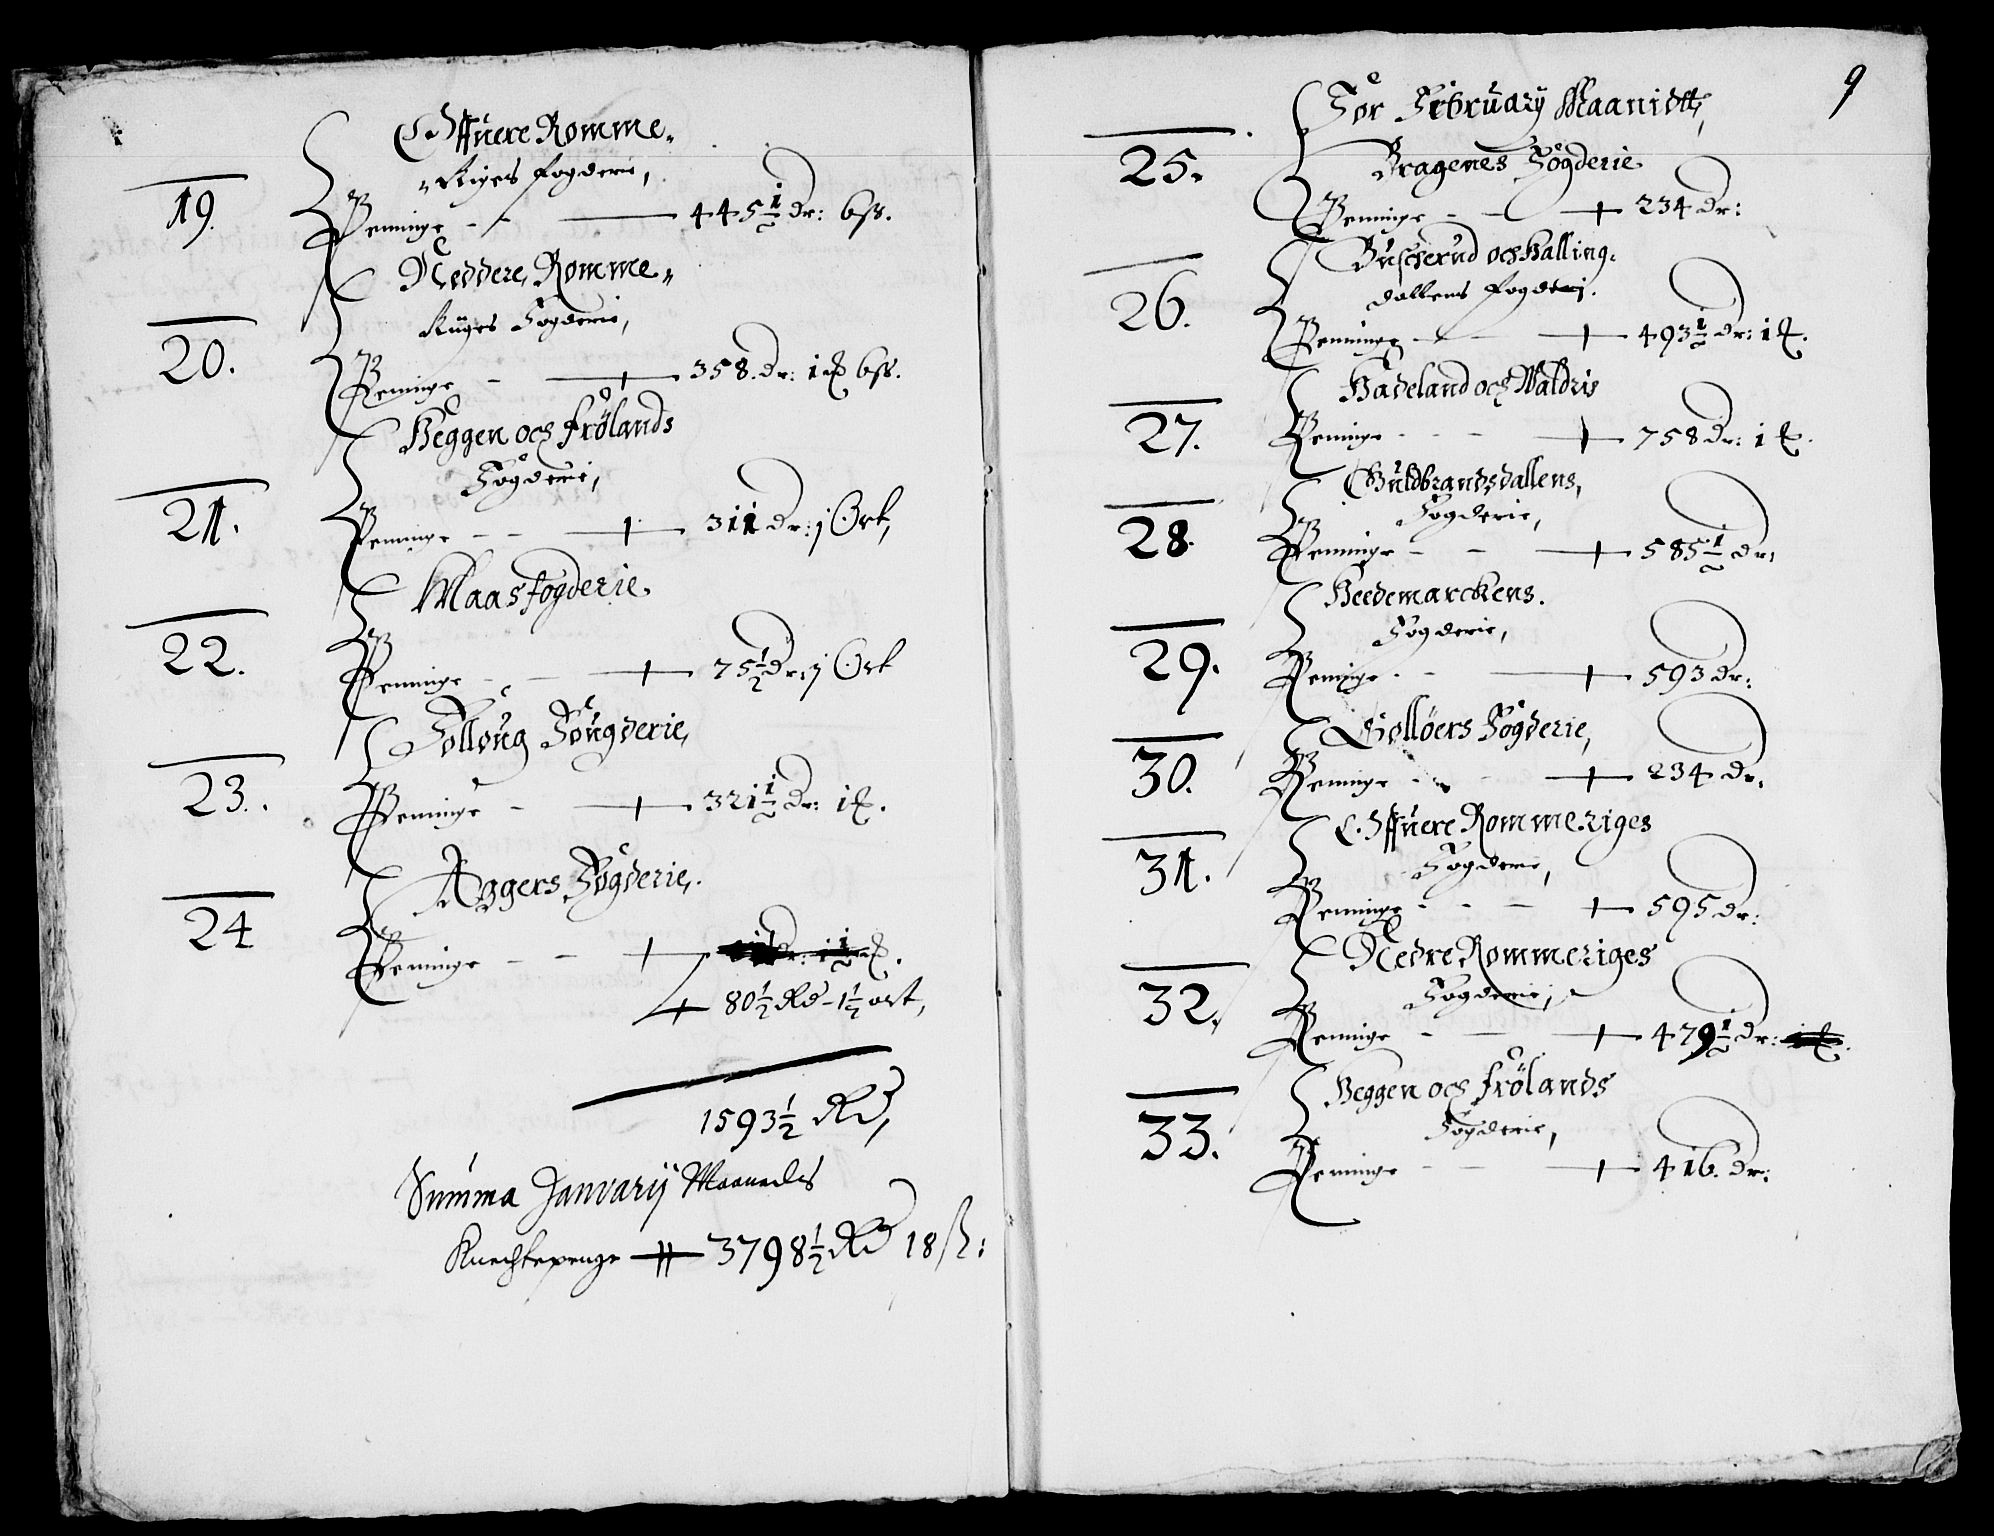 Offuere Romme-
-Riges fogderie,
19. Penninge - - 445½ dr: 6ſß.
Neddere Romme-
Riiges Fogderie,
20. Penninge - 358. dr: 1 ꝶ 6ſß.
Heggen och Frölands
Fogderie,
21. Penninge - - 311 dr: j Ort,
Maasfogderie.
22. Penninge - - 75½ dr: j Ort
Folloug Fougderie,
23. Penninge - 321½ dr: 1 ꝶ.
Aggers Fogderie,.
24 Penninge - -
80½ Rd - 1½ ort,
1593½ Rd,
Summa Januarij Maanedts
Knechtepenge 3798½ Rd 18 ß:
9
For February Maanidtt,
Bragenes Fogderie
25. Penninge - - 234 dr:
Buscherud och Halling-
dallens fogderj.
26. Penninge - - 493½ dr: 1 ꝶ.
Hadeland och Waldris
27. Peninge - - - 758 dr: 1 ꝶ.
Guldbrandsdallens,
Fogderie,
28. Penninge - - 585½ dr:
Heedemarckens.
Fogderie,
29. Peninge - - 593 dr:
Solløers Fogderie,
30. Penninge - - 234 dr.
Offuere Rommeriges
Fogderie,
31. Penninge - - - 595 dr:
Nedre Rommeriges
Fogderie,
32. Penninge - - 479½ dr:
Heggen och Frölands
Fogderie,
33. Peninge - - 416. dr: